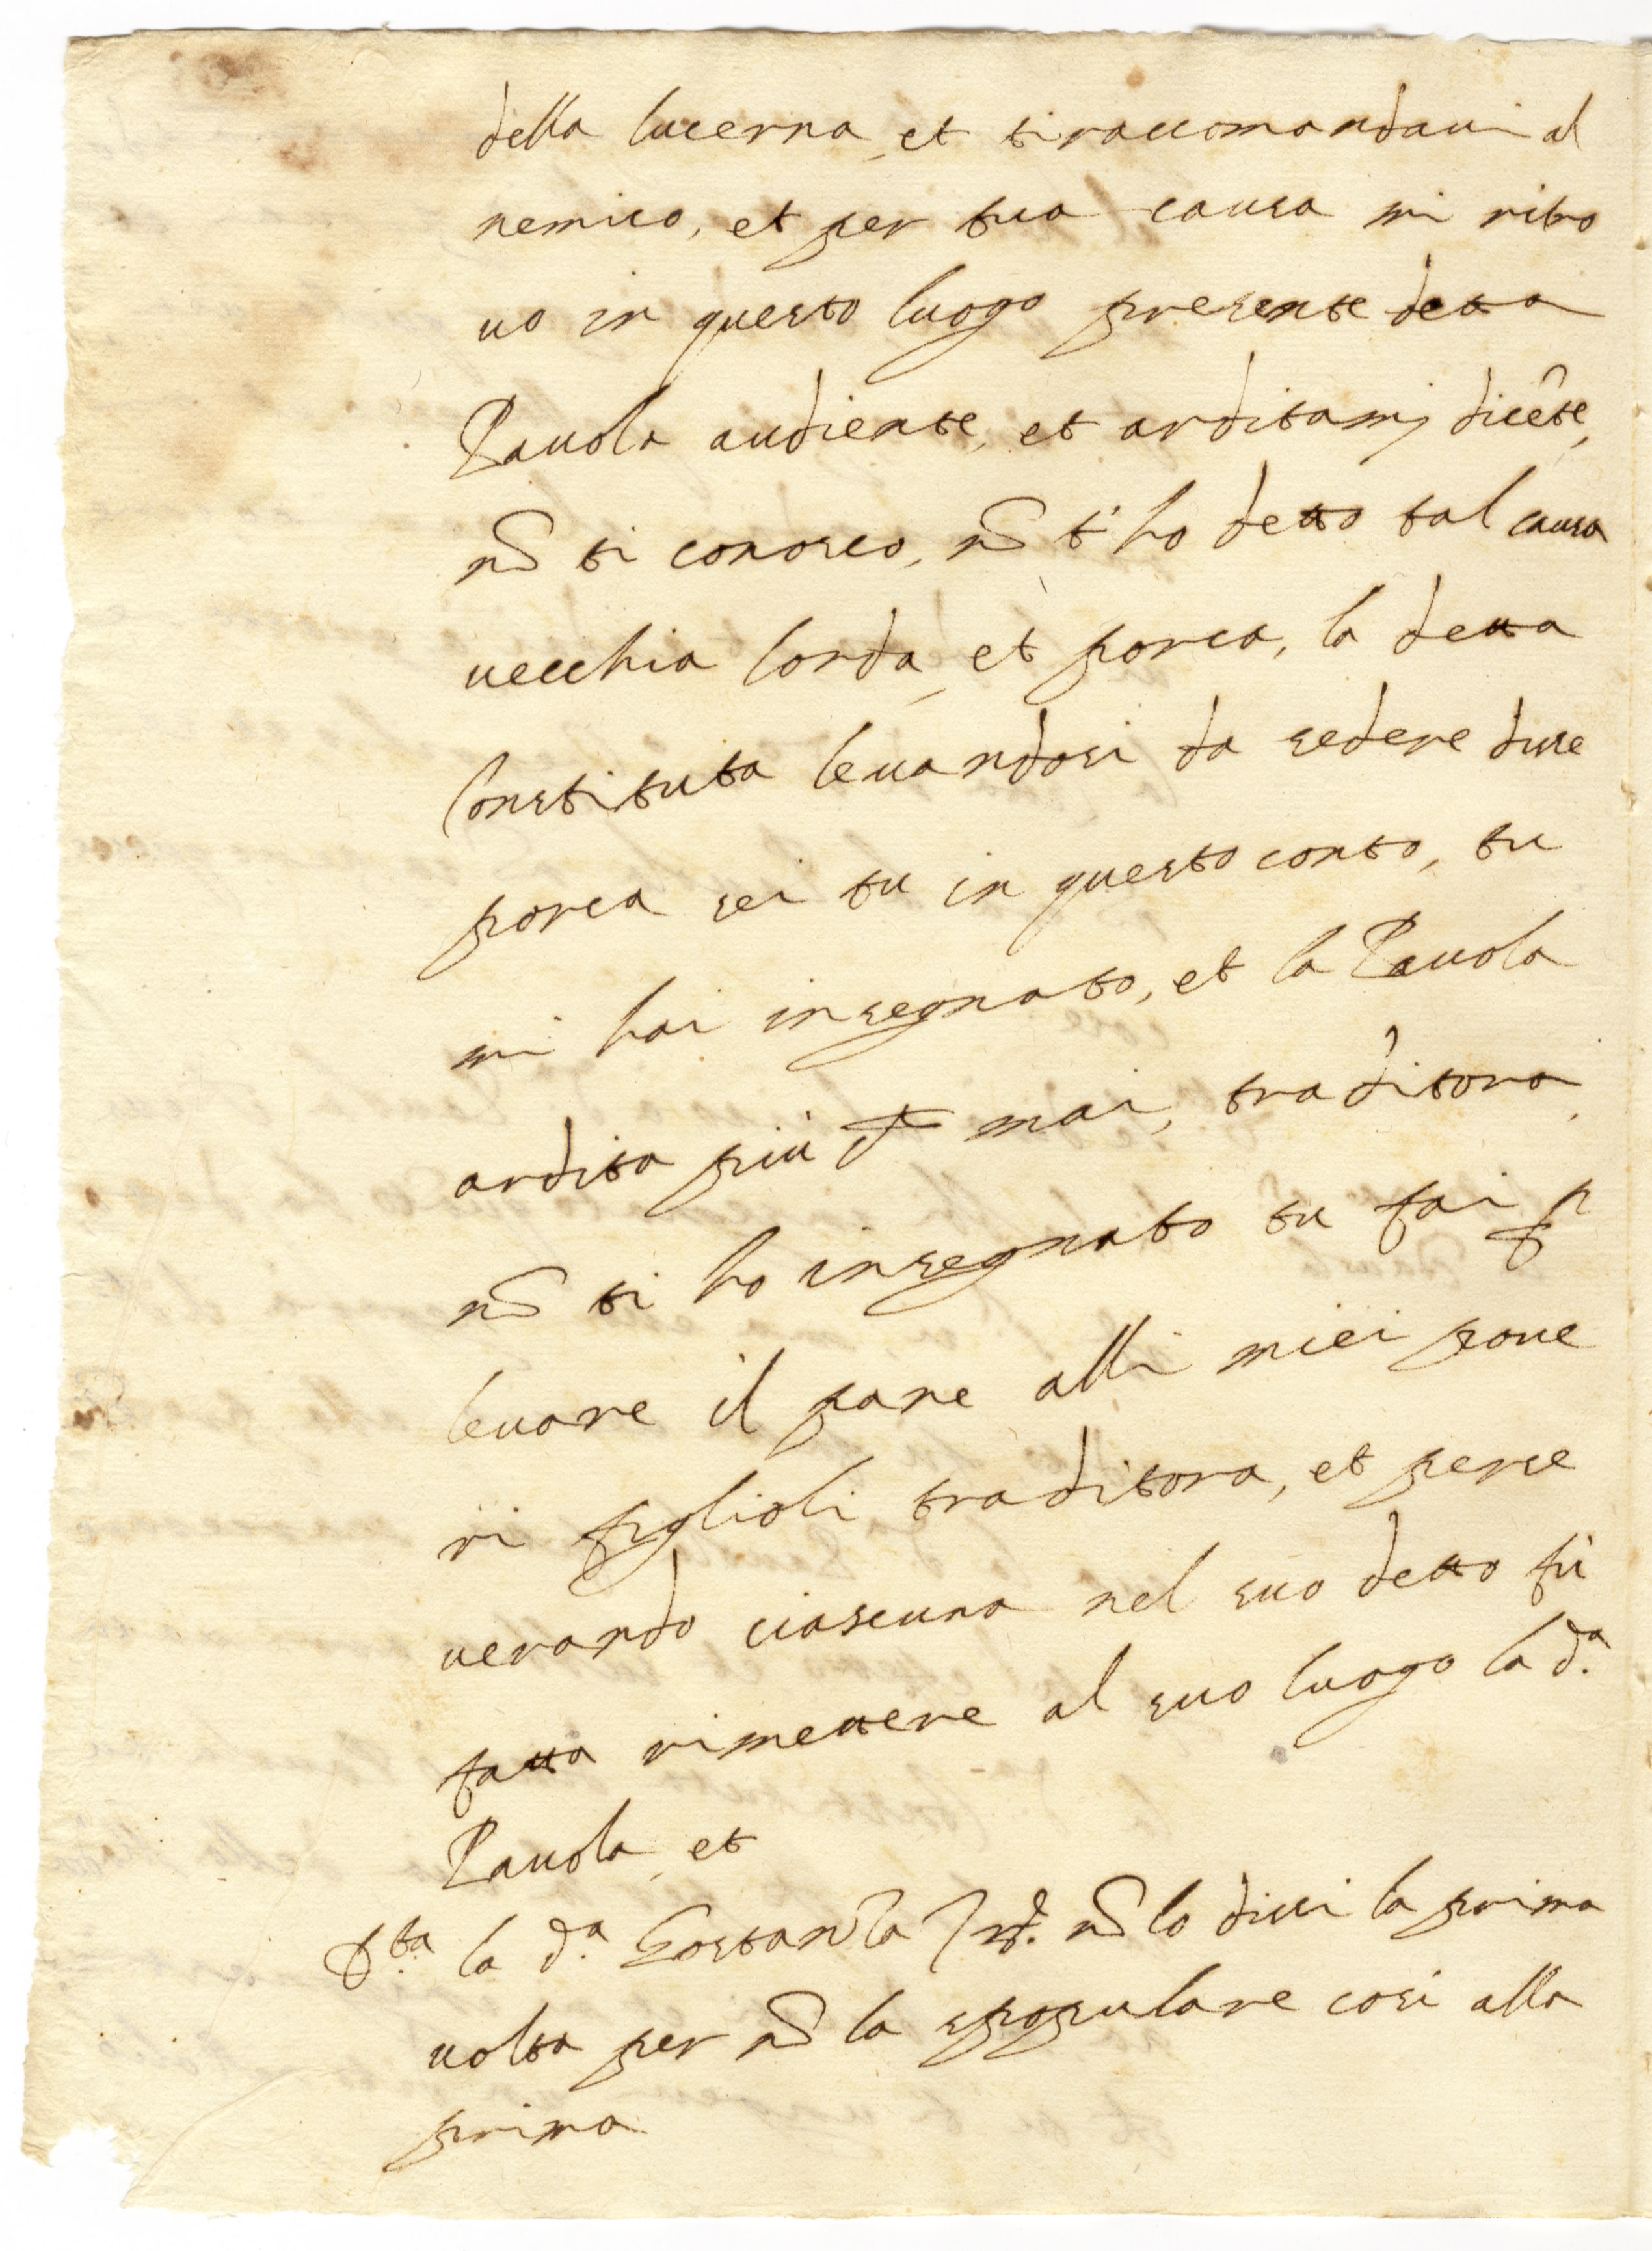 della lucerna, et ti raccomandaui al
nemico, et per tua causa mi ritro
uo in questo luogo presente detta
Pauola audiente, et arditamj dicẽte,
nõ ti conosco, nõ t'ho detto tal causa
uecchia lorda, et porca, la detta
Constituta leuandosi da sedere disse
porca sei tu in questo conto, tu
mi hai insegnato, et la Pauola
ardita più che mai, traditora,
nõ ti ho insegnato tu fai p
leuare il pane alli miei poue
ri figlioli traditora, et perse
uerando ciascuna nel suo detto fù
fatta rimettere al suo luogo la d.ª
Pauola, et
la d.ª Gostanza nõ lo dissi la prima
uolta per nõ la spopulare cosi alla
prima